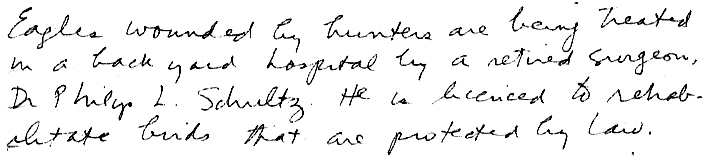 Eagles wounded by hunters are being treated
in a back yard hospital by a retired surgeon,
Dr Philip L. Schultz. He is licenced to rehab-
ilitate birds that are protected by law.